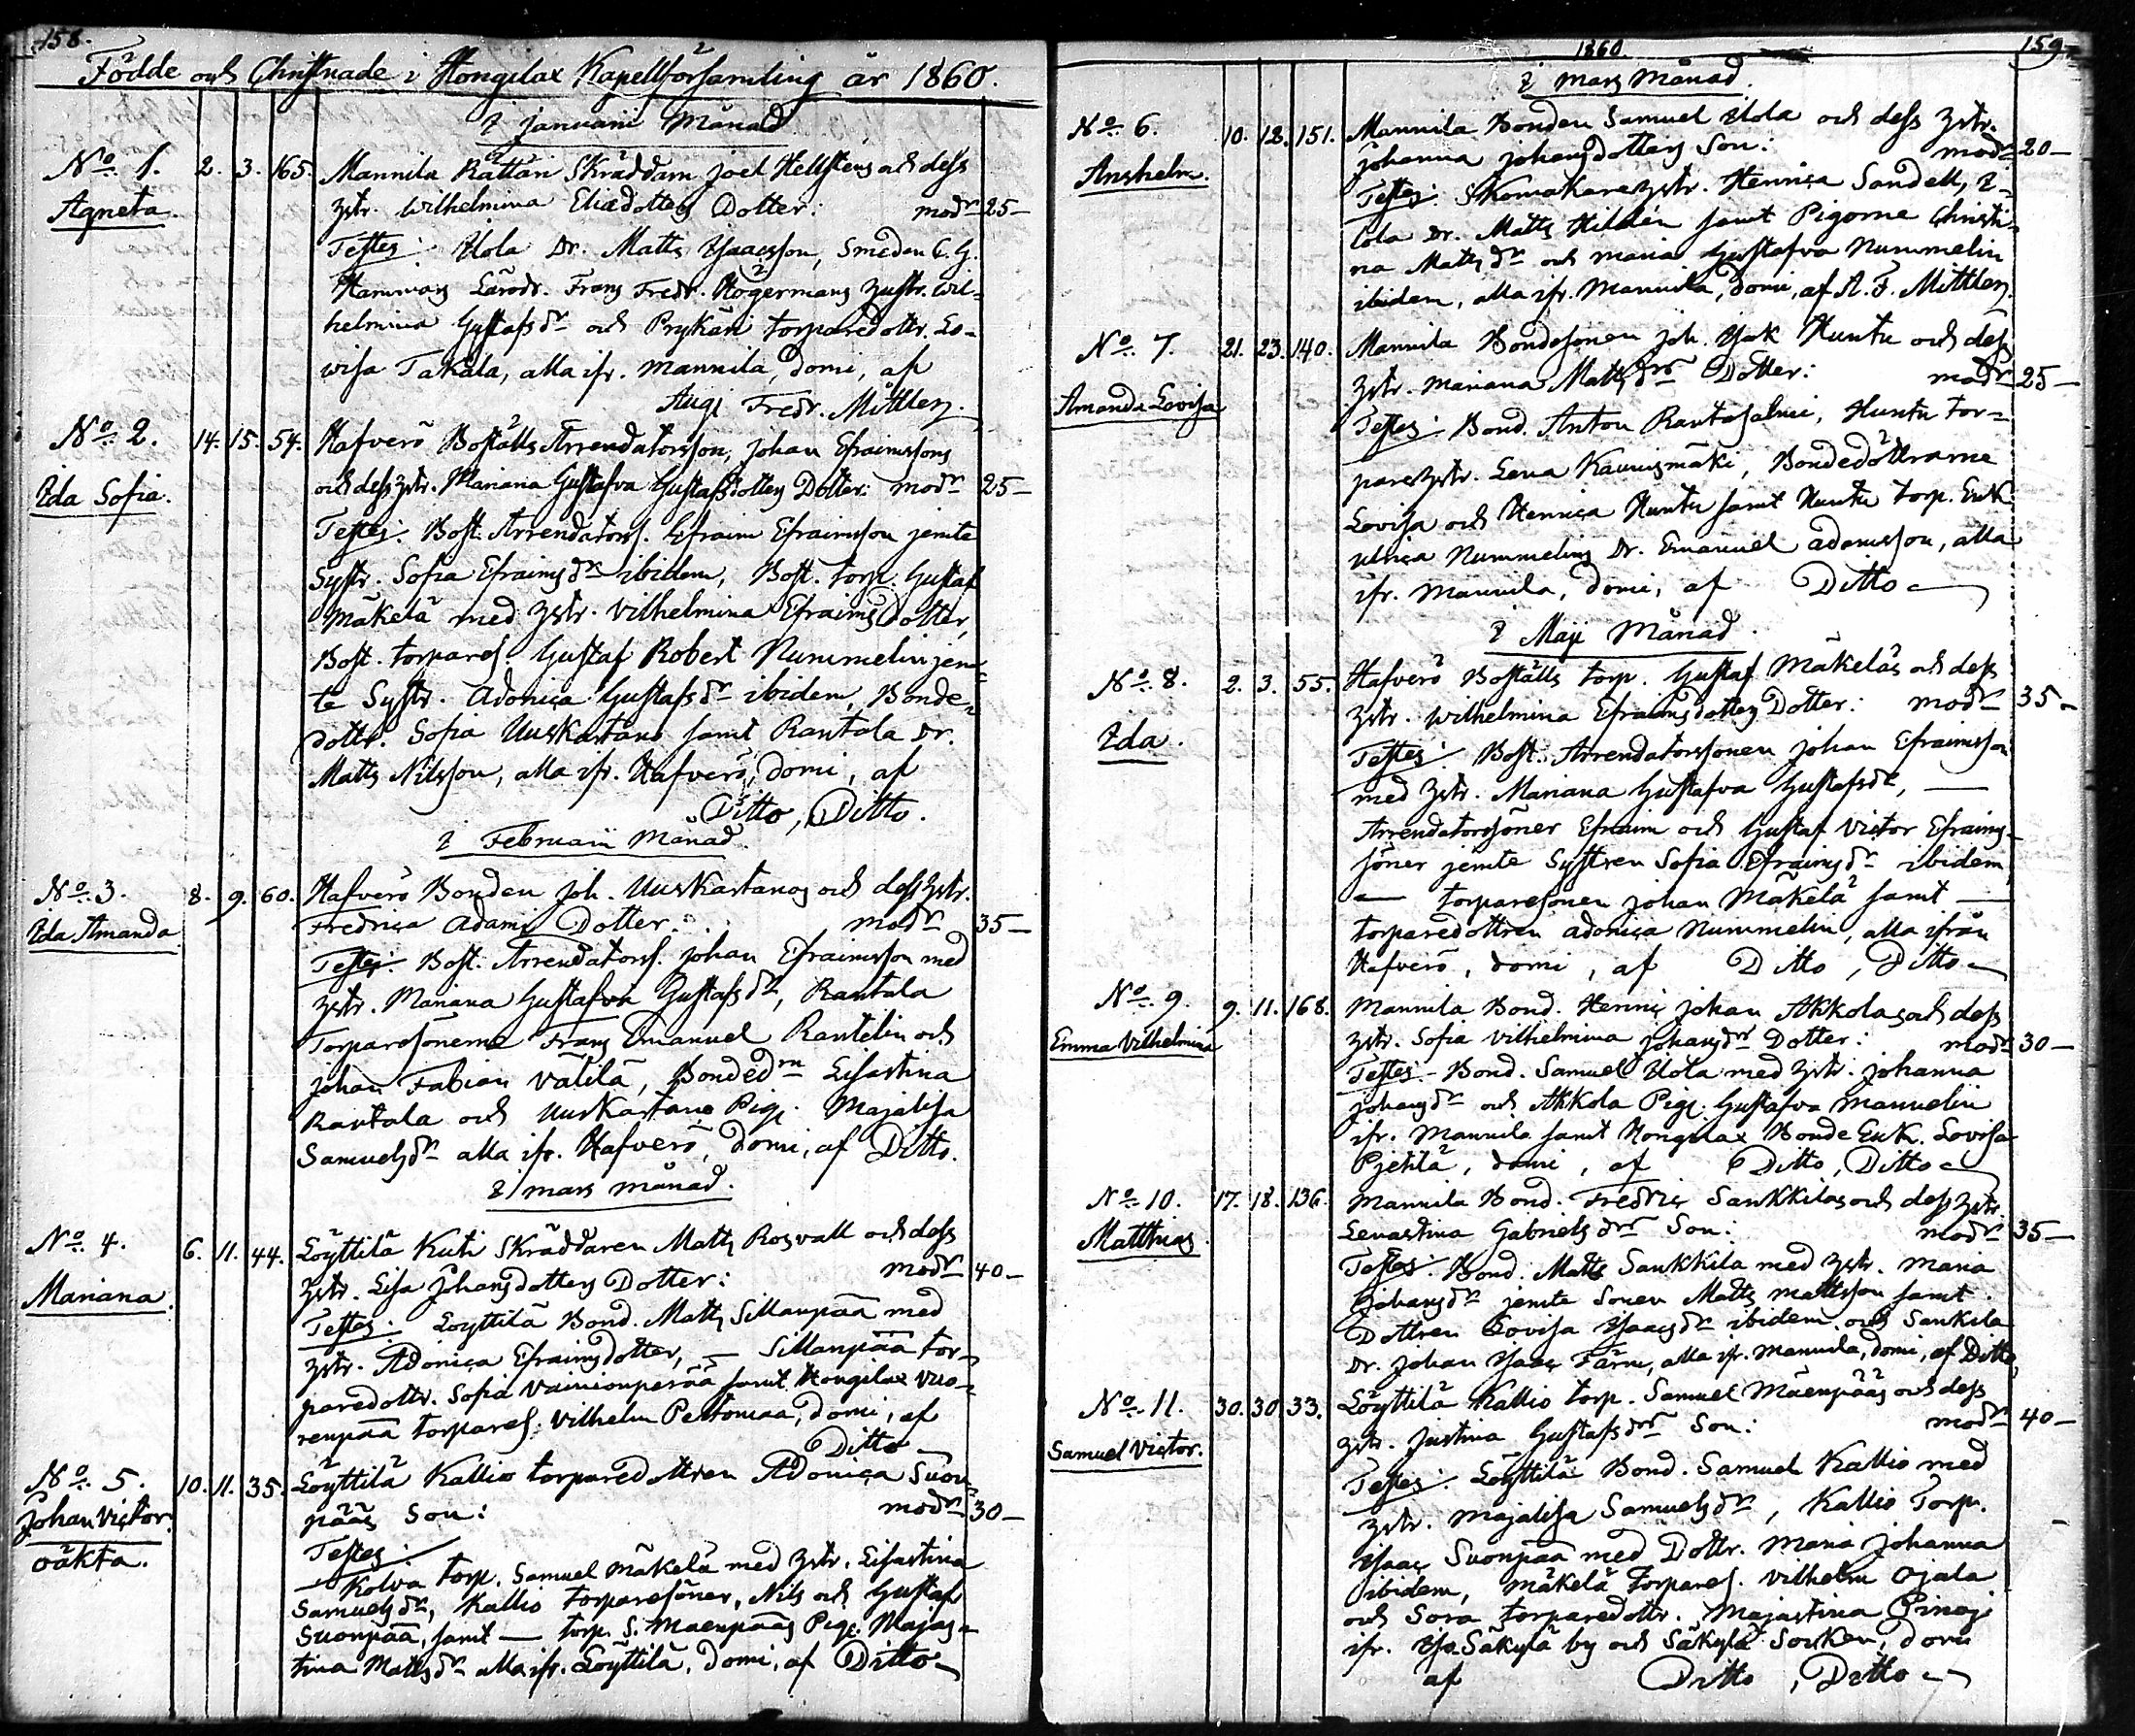 158.
Födde och Christnade i Hongilax Kapellförsamling år 1860.
I Januarii Månad
No. 1. 2. 3. 165. Mannila Rättäri Skräddarn Joel Hellstens och dess
Agneta. hstr. Wilhelmina Eliædotters Dotter: modr 25—
Testes: Uola Dr. Matts Isaacsson, Smeden C. G.
Hammars Lärodr. Frans Fredr. Högermans hustr. Wil-
helmina Gustafsdr och Prykäri torparedottr. Lo-
visa Takala, alla ifr. Mannila, domi, af
Augi Fredr. Mittler.
No. 2. 14. 15. 54. Hafverö Boställs Arrendatorsson, Johan Efraimssons
Ida Sofia. och dess hstr. Mariana Gustafva Gustafsdotters Dotter: modr 25—
Testes: Bost. Arrendators. Efraim Efraimsson jemte
Systr. Sofia Efraimsdr ibidem, Bost. torp. Gustaf
Mäkelä med hstr. Vilhelmina Efraimsdotter,
Bost. torpares. Gustaf Robert Nummelin jem-
te Systr. Adonica Gustafsdr ibidem, Bonde-
dottr. Sofia Uuskartano samt Rantala Dr.
Matts Nilsson, alla ifr. Hafverö, domi, af
Ditto, Ditto.
I Februarii Månad
No. 3. 8. 9. 60. Hafverö Bonden Joh. Uuskartanos och dess hstr.
Ida Amanda Fredrica Adams Dotter: modr 35—
Testes: Bost. Arrendators. Johan Efraimsson med
hstr. Mariana Gustafva Gustafsdr, Rantala
Torparesönerne Frans Emanuel Rantelin och
Johan Fabian Välilä, Bondedrn Lisastina
Rantala och Uuskartano Pig. Majalisa
Samuelsdr alla ifr. Hafverö, domi, af Ditto.
I Mars Månad.
No. 4. 6. 11. 44. Löyttilä Kuti Skräddaren Matts Rosvall och dess
Mariana. hstr. Lisa Johansdotters Dotter: modr 40—
Testes: Löyttilä Bond. Matts Sillanpää med
hstr. Adonica Efraimsdotter, — Sillanpää tor-
paredottr. Sofia Vainionperää samt Hongilax Vuo-
renpää torpares. Vilhelm Pertomaa, domi, af
Ditto
No. 5. 10. 11. 35. Löyttilä Kallio torparedottren Adonica Suon-
Johan Victor. pääs Son: modr 30—
oäkta. Testes:
Kolva torp. Samuel Mäkelä med hstr. Lisastina
Samuelsdr, Kallio torparesöner, Nils och Gustaf
Suonpää, samt — torp. S. Mäenpääs Pig. Majas-
tina Mattsdr alla ifr. Löyttilä, domi, af Ditto
1860. 159.
I Mars Månad.
No. 6. 10. 12. 151. Mannila Bonden Samuel Uola och dess hstr.
Anshelm. Johanna Johansdotters Son: modr 20—
Testes: Skomakarehstr. Henrica Sandell, U-
ola Dr. Matts Hildén samt Pigorne Christi-
na Mattsdr och Maria Gustafva Nummelin
ibidem, alla ifr. Mannila, domi, af A. F. Mittler.
No. 7. 21. 23. 140. Mannila Bondesonen Joh. Isak Huntu och dess
Amanda Lovisa hstr. Mariana Mattsdrs Dotter: modr 25—
Testes: Bond. Anton Rantasalmi, Huntu tor-
parehstr. Lena Kaunismäki, Bondedöttrarne
Lovisa och Henrica Huntu samt Huntu torp. Enk.
Ulrica Nummelins Dr. Emanuel Adamsson, alla
ifr. Mannila, domi, af Ditto
I Maji Månad.
No. 8. 2. 3. 55. Hafverö Boställs torp. Gustaf Mäkeläs och dess
Ida. hstr. Wilhelmina Efraimsdotters Dotter: modr 35—
Testes: Bost. Arrendatorssonen Johan Efraimsson
med hstr. Mariana Gustafva Gustafsdr, —
Arrendatorssöner Efraim och Gustaf Victor Efraims-
söner jemte Systren Sofia Efraimsdr ibidem,
— torparesonen Johan Mäkelä samt —
torparedottren Adonica Nummelin, alla ifrån
Hafverö, domi, af Ditto, Ditto
No. 9. 9. 11. 168. Mannila Bond. Henric Johan Akkolas och dess
Emma Vilhelmina hstr. Sofia Vilhelmina Johansdrs Dotter: modr 30—
Testes: Bond. Samuel Uola med hstr. Johanna
Johansdr och Akkola Pig. Gustafva Mannelin
ifr. Mannila samt Hongilax Bonde Enk. Lovisa
Pjetilä, domi, af Ditto, Ditto
No. 10. 17. 18. 136. Mannila Bond. Fredric Sankkilas och dess hstr.
Matthias. Lenastina Gabrielsdrs Son: modr 35—
Testes: Bond. Matts Sankkila med hstr. Maria
Johansdr jemte Sonen Matts Mattsson samt
Dottren Lovisa Isaacsdr ibidem och Sankila
Dr. Johan Isaac Färm, alla ifr. Mannila, domi, af Ditto,
No. 11. 30. 30. 33. Löyttilä Kallio torp. Samuel Mäenpääs och dess
Samuel Victor. hstr. Justina Gustafsdrs Son: modr 40—
Testes: Löyttilä Bond. Samuel Kallio med
hstr. Majalisa Samuelsdr, Kallio Torp.
Isaac Suonpää med Dottr. Maria Johanna
ibidem, Mäkelä Torpares. Vilhelm Ojala
och Sora torparedottr. Majastina Pinoja
ifr. Iso Säkylä by och Säkylä Socken, domi
af Ditto, Ditto